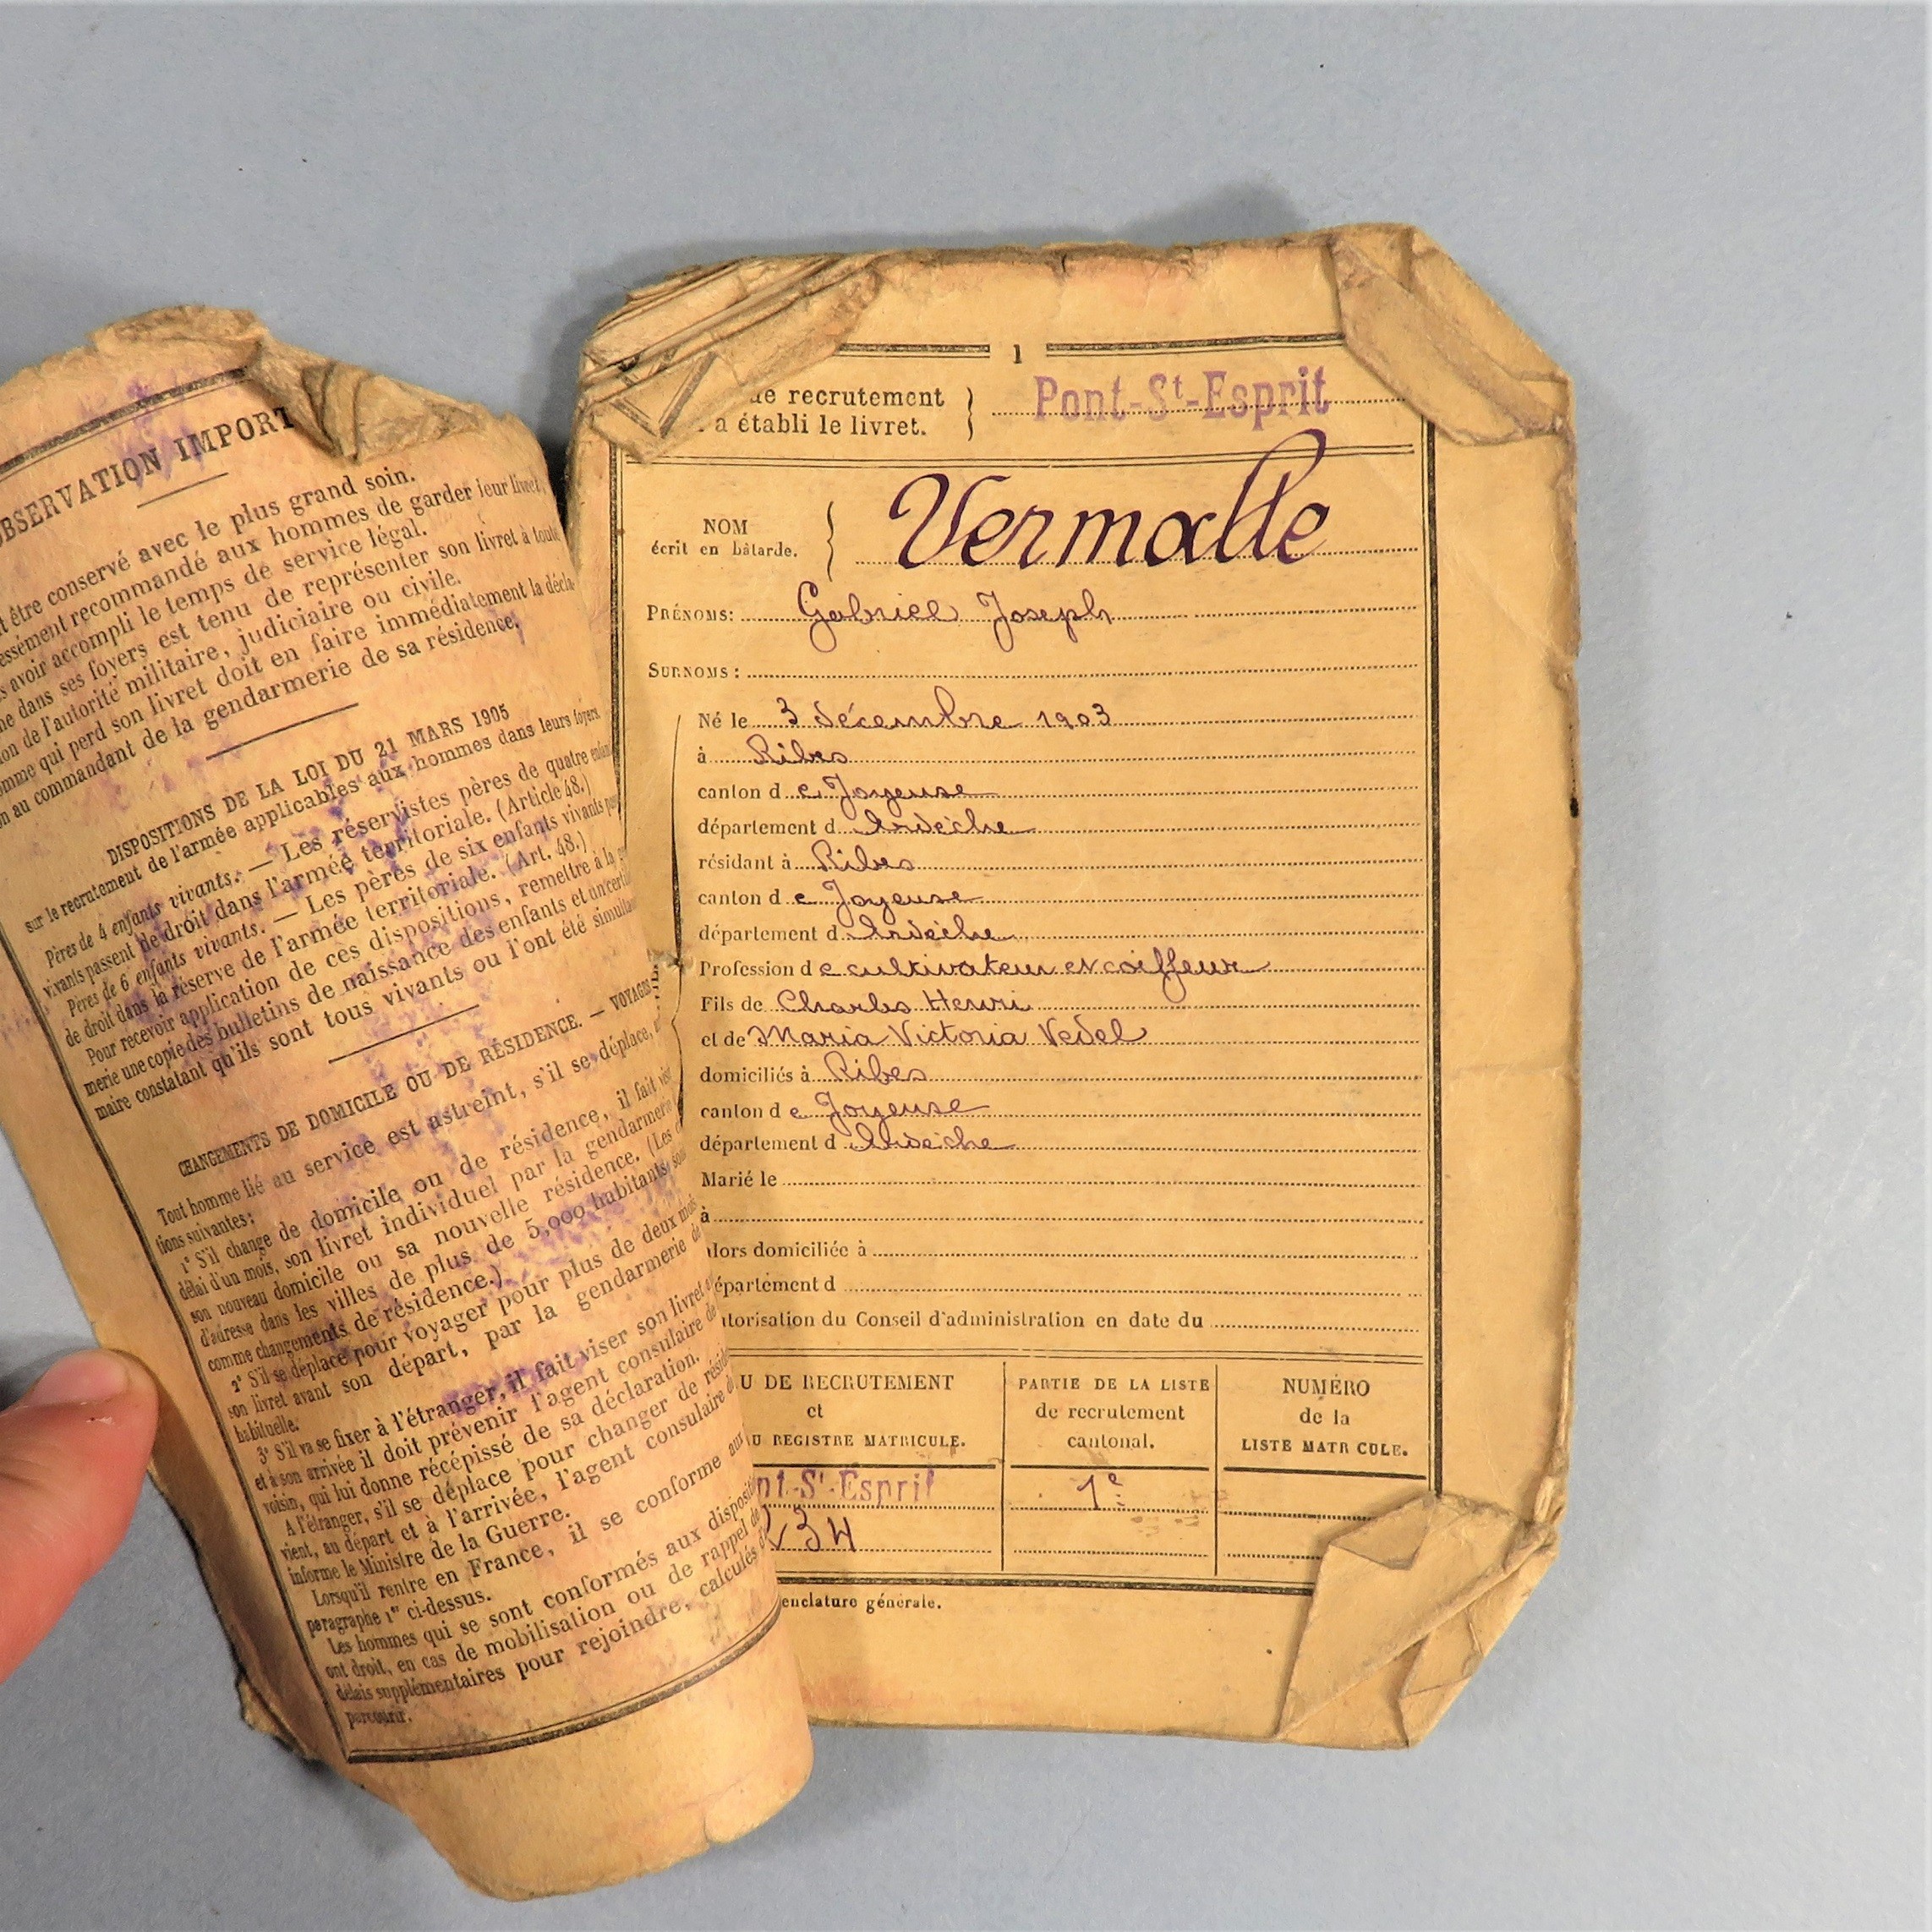 OBSERVATION IMPORT
être conservé avec le plus grand soin.
recommandé aux hommes de garder leur livret
avoir accompli le temps de service légal.
dans ses foyers est tenu de représenter son livret à toute
de l'autorité militaire, judiciaire ou civile.
qui perd son livret doit en faire immédiatement la décla-
au commandant de la gendarmerie de sa résidence.
DISPOSITIONS DE LA LOI DU 21 MARS 1905
sur le recrutement de l'armée applicables aux hommes dans leurs foyers.
Pères de 4 enfants vivants. — Les réservistes pères de quatre enfants
vivants passent de droit dans l'armée territoriale. (Article 48.)
Pères de 6 enfants vivants. — Les pères de six enfants vivants
de droit dans la réserve de l'armée territoriale. (Art. 48.)
Pour recevoir application de ces dispositions, remettre à la
merie une copie des bulletins de naissance des enfants et un certi
maire constatant qu'ils sont tous vivants ou l'ont été simulta
CHANGEMENTS DE DOMICILE OU DE RÉSIDENCE. — VOYAGES
Tout homme lié au service est astreint, s'il se déplace,
tions suivantes:
1° S'il change de domicile ou de résidence, il fait viser
délai d'un mois, son livret individuel par la gendarmerie
son nouveau domicile ou sa nouvelle résidence. (Les
d'adresse dans les villes de plus de 5,000 habitants
comme changements de résidence.)
2° S'il se déplace pour voyager pour plus de deux mois
son livret avant son départ, par la gendarmerie de
habituelle.
3° S'il va se fixer à l'étranger, il fait viser son livret
et à son arrivée il doit prévenir l'agent consulaire de
voisin, qui lui donne récépissé de sa déclaration.
A l'étranger, s'il se déplace pour changer de réside
vient, au départ et à l'arrivée, l'agent consulaire
informe le Ministre de la Guerre.
Lorsqu'il rentre en France, il se conforme aux
paragraphe 1er ci-dessus.
Les hommes qui se sont conformés aux disposit
ont droit, en cas de mobilisation ou de rappel de
délais supplémentaires pour rejoindre, calculés
parcourir.
1
de recrutement
a établi le livret.
Pont-St-Esprit
NOM
écrit en bâtarde.
Vermalle
PRÉNOMS: Gabriel Joseph
SURNOMS:
Né le 3 décembre 1903
à Ribes
canton de Joyeuse
département d Ardèche
résidant à Ribes
canton de Joyeuse
département d Ardèche
Profession de cultivateur et coiffeur
Fils de Charles Henri
et de Maria Victoria Vedel
domiciliés à Ribes
canton de Joyeuse
département d Ardèche
Marié le
à
alors domiciliée à
épartement d
torisation du Conseil d'administration en date du
U DE RECRUTEMENT
et
U REGISTRE MATRICULE.
PARTIE DE LA LISTE
de recrutement
cantonal.
NUMÉRO
de la
LISTE MATR CULE.
nt-St-Esprit
1e
34
enclature générale.